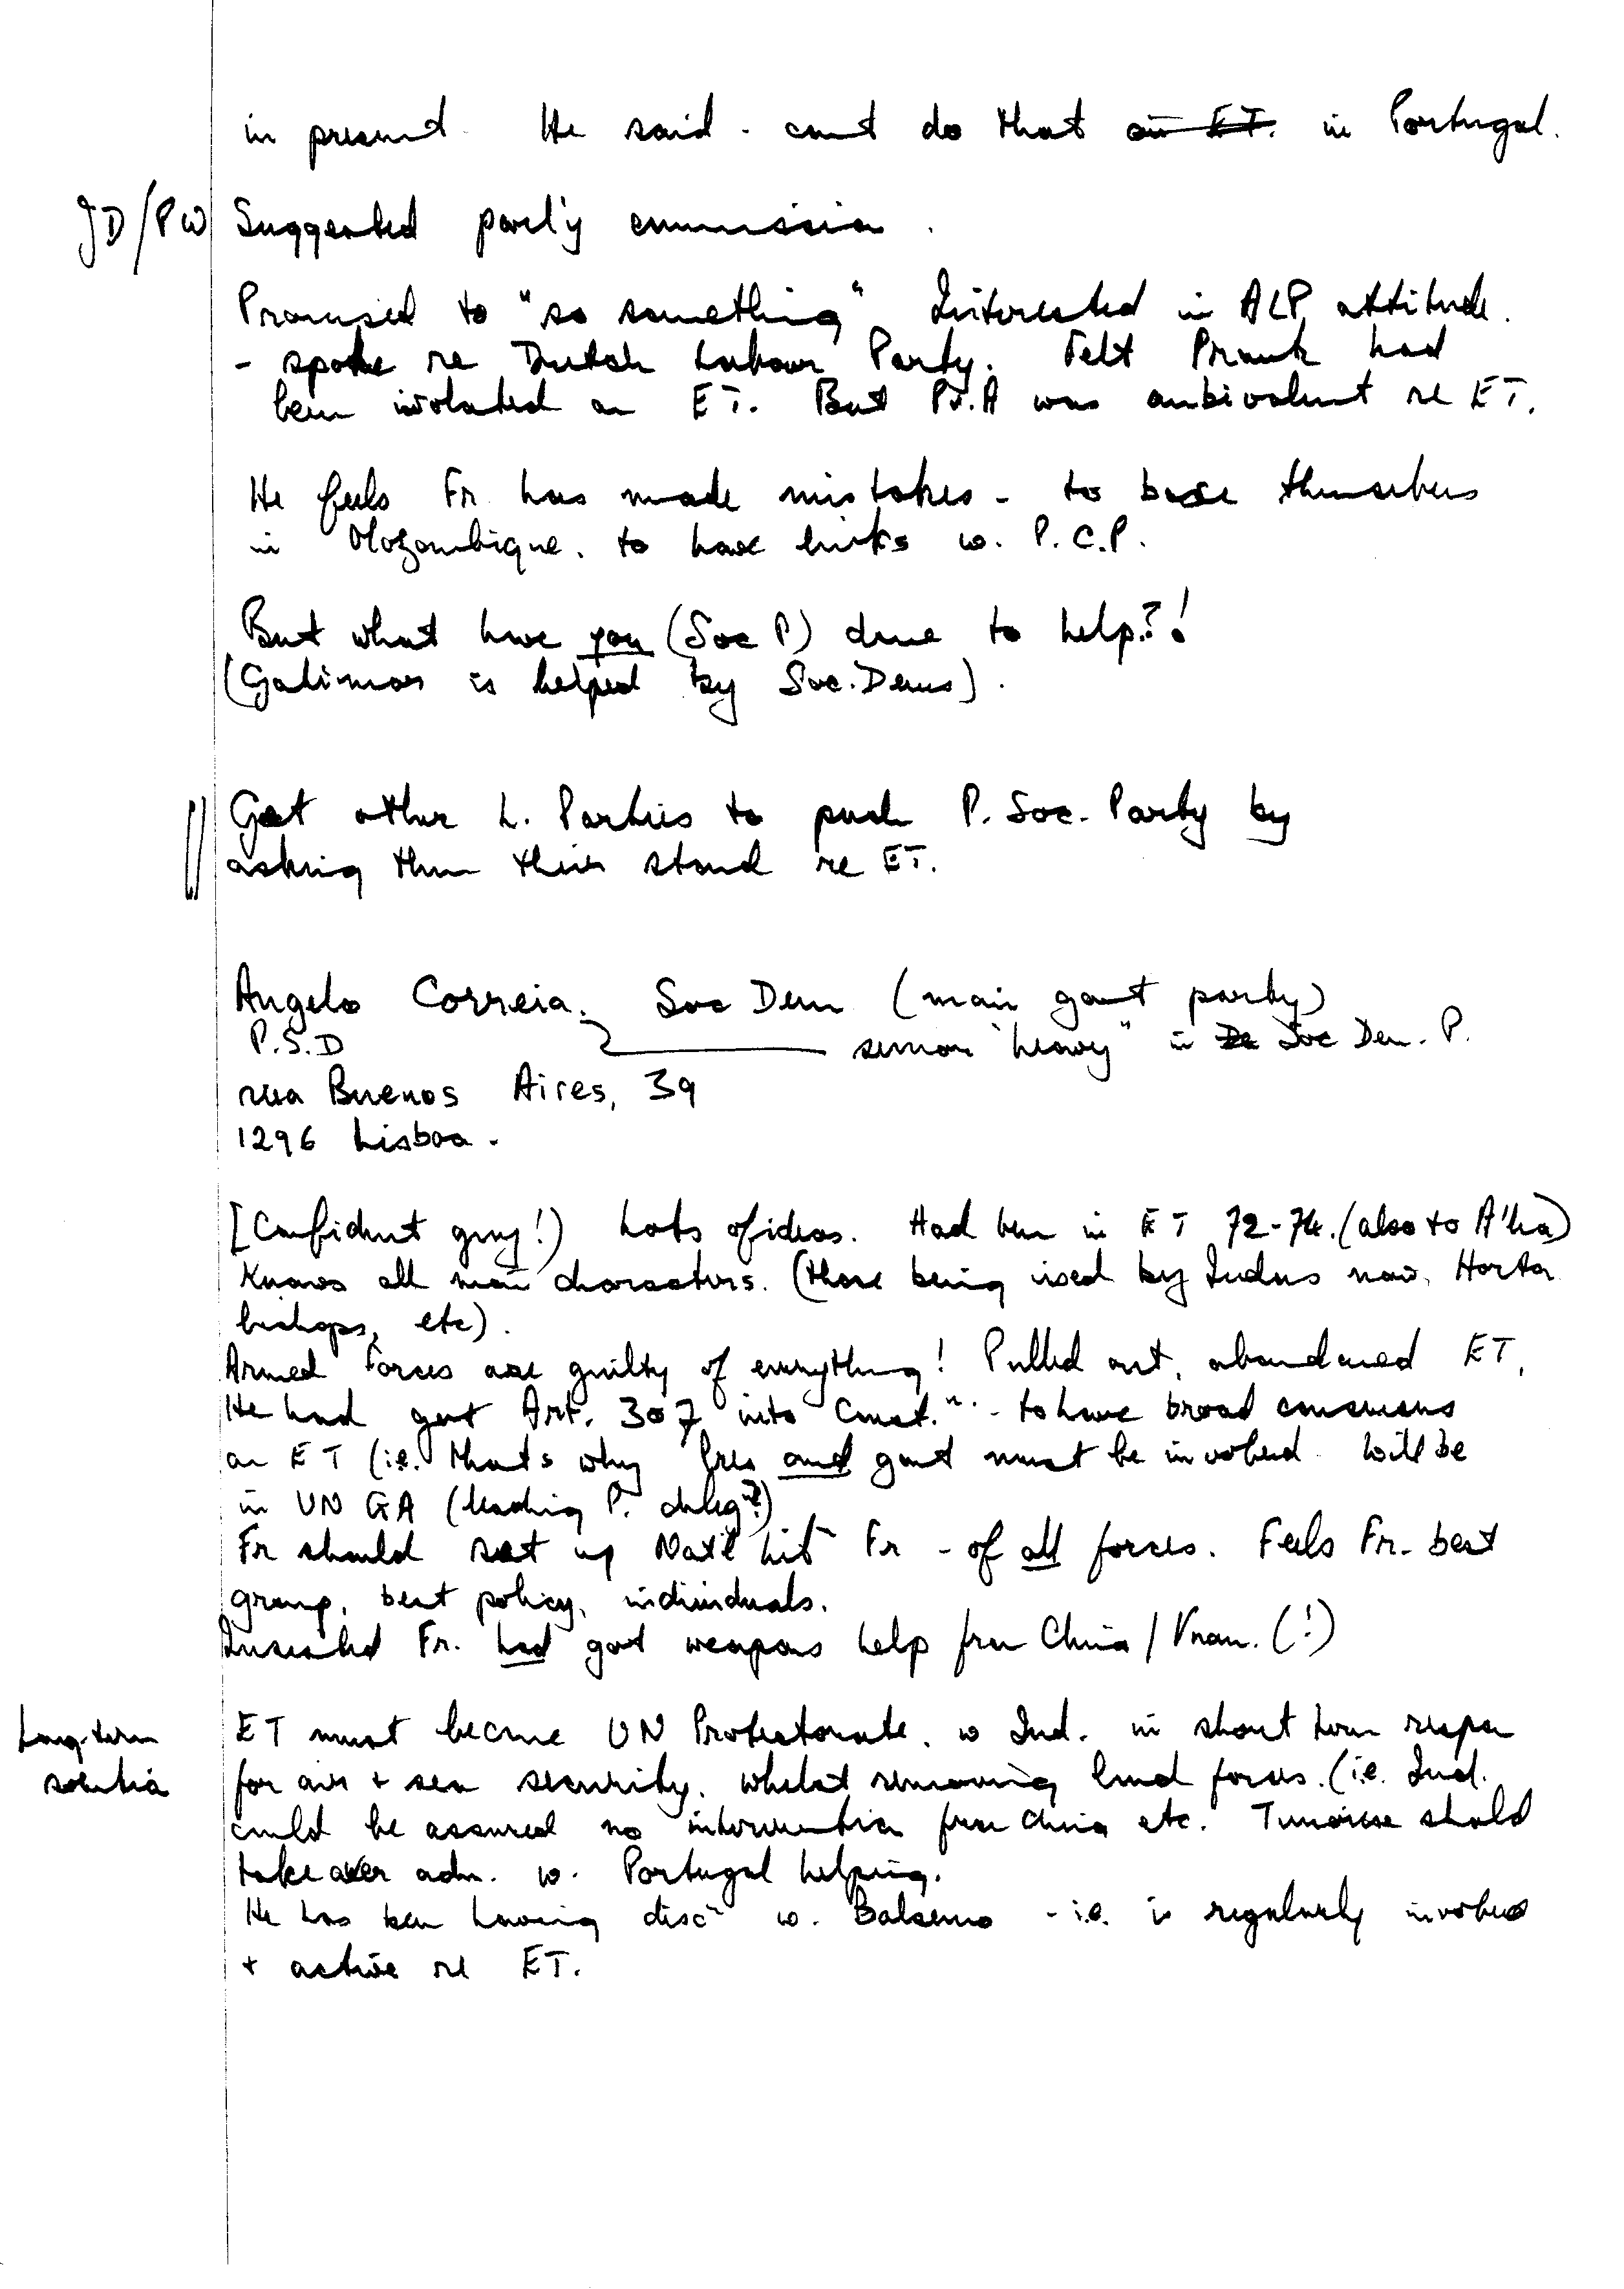 in present. He said - cant do that on E.T. in Portugal.
JD/PW Suggested party commission.
Promised to "so something" Interested in ALP attitude.
- spoke re Dutch Labour Party. Felt Pronk had
been isolated on ET. But Pv.A was ambivalent re ET.
He feels Fr. has made mistakes - to base themselves
in Mozambique. to have links w. P.C.P.
But what have you (Soc P) done to help?!
(Galimar is helped by Soc. Dems).
Get other L. Parties to push P. Soc. Party by
asking them their stand re ET.
Angelo Correia. Soc Dem (main govt party)
P.S.D senior "heavy" in De Soc Dem. P.
rua Buenos Aires, 39
1296 Lisboa.
[Confident guy!) Lots of ideas. Had been in ET 72-74. (also to A'lia)
Knows all main characters. (those being used by Indons now, Horta
bishops, etc).
Armed Forces are guilty of everything! Pulled out, abandoned ET.
He had got Art. 307 into Const.n. - to have broad consensus
on ET (i.e. that's why Pres and govt must be involved. Will be
in UN GA (leading P. delegn?)
Fr should set up Nat'l Libn Fr - of all forces. Feels Fr. best
group, best policy, individuals.
Insisted Fr. had got weapons help from China / Vnam. (!)
Long-term ET must become UN Protectorate. w Ind. in short term respon
solution for air + sea security. whilst removing land forces. (i.e. Ind.
could be assured no intervention from China etc. Timorese should
take over adm. w. Portugal helping.
He has been having discn w. Balsemo - i.e. is regularly involved
+ active re ET.